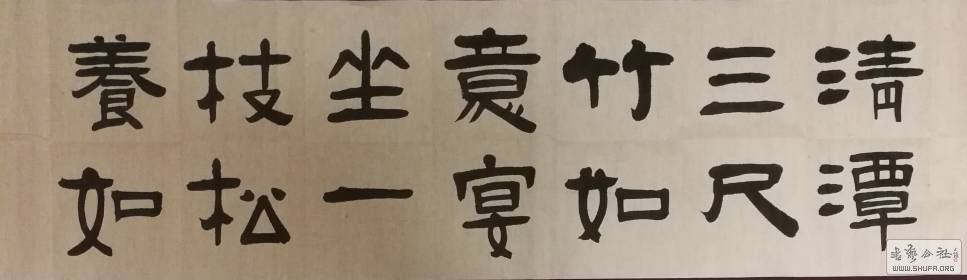 清潭
三尺
竹如
意宴
坐一
枝松
養如
书艺公社
WWW.SHUFA.ORG